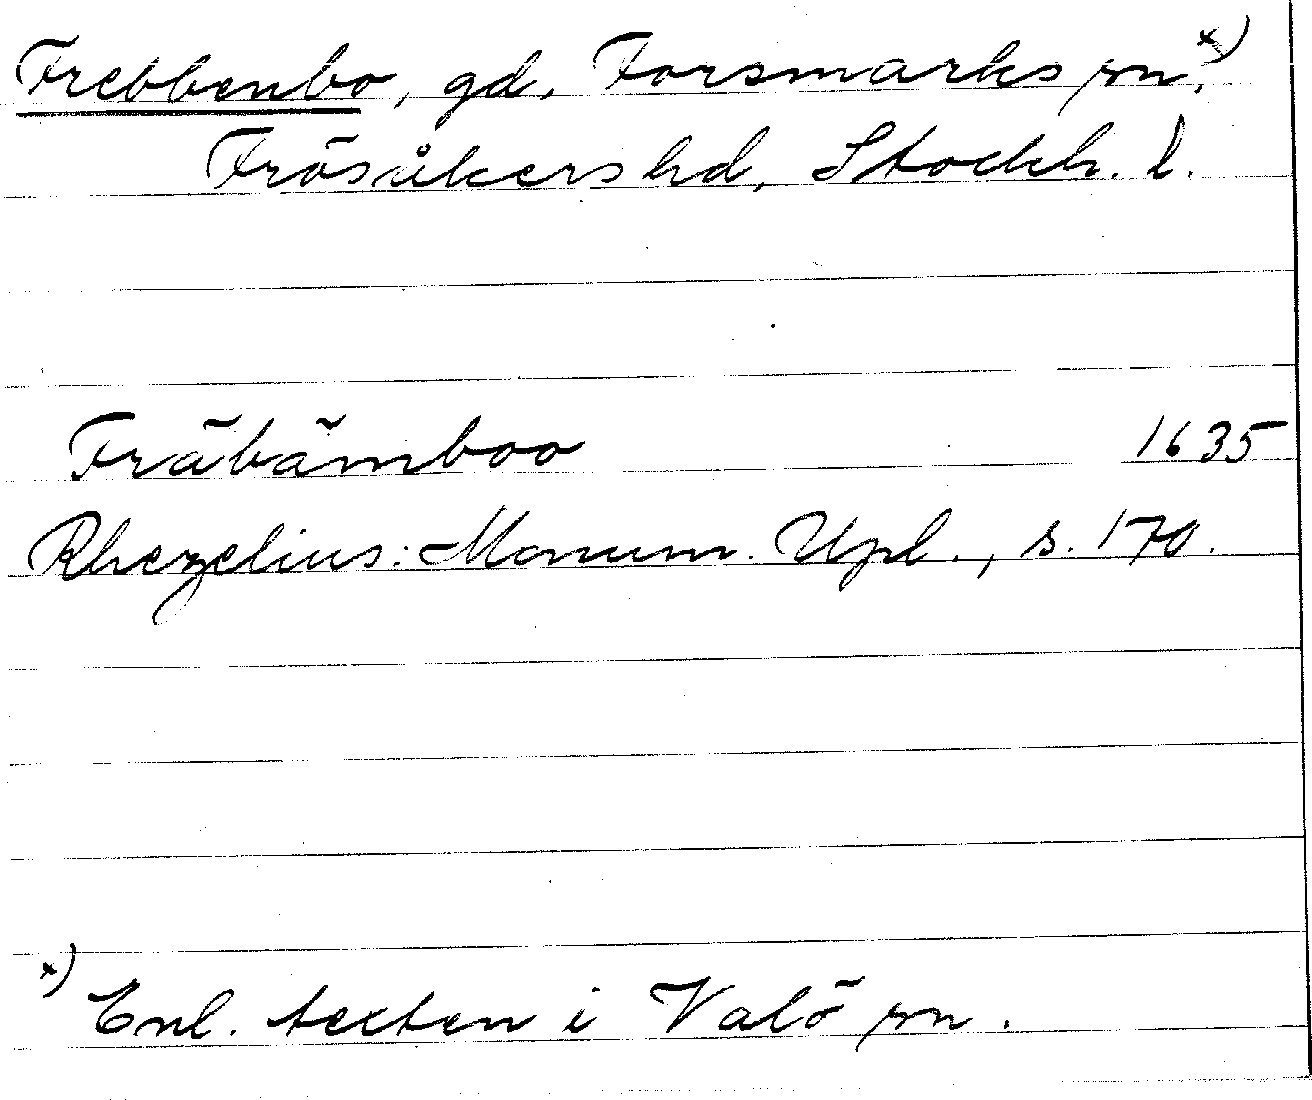 Frebbenbo, gd, Forsmarks sn,x)
Frösåkers hd, Stockh. l.
Fräbämboo 1635
Rhezelius: Monum. Upl., s. 170.
x) Enl. texten i Valö sn.